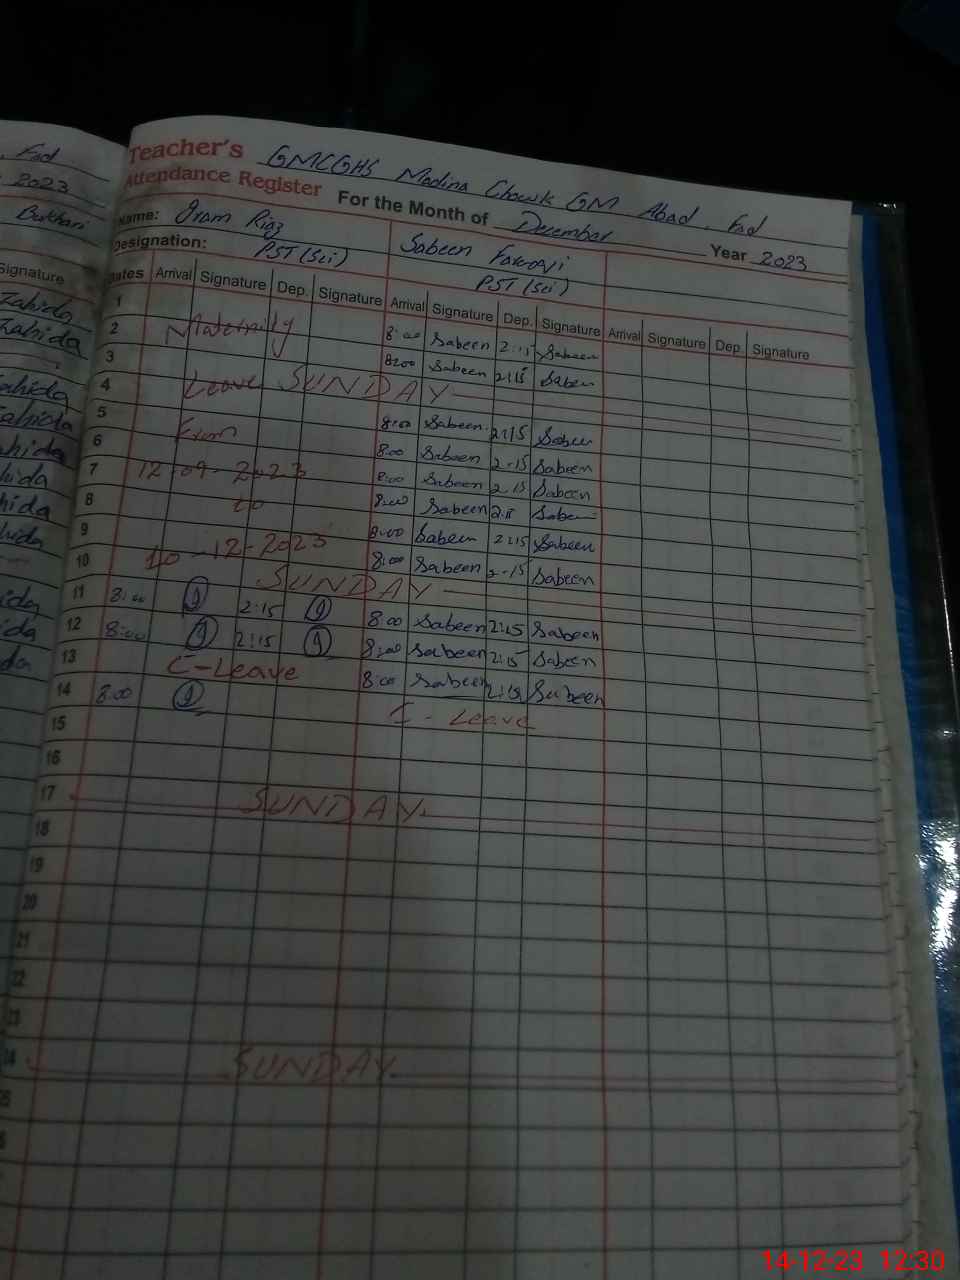 Fsd
2023
Bukhari
Signature
Zahida
Zahida
Teacher's GMCGHS Madina Chowk GM Abad, Fsd
Attendance Register For the Month of December Year 2023
Name: Iram Riaz Sabeen
Designation: PST (Sci) PST (Sci)
Dates Arrival Signature Dep. Signature Arrival Signature Dep. Signature Arrival Signature Dep. Signature
1 Maternity 8:00 Sabeen 2:15 Sabeen
2 8:00 Sabeen 2:15 Sabeen
3 Leave SUNDAY
4 8:00 Sabeen 2:15 Sabeen
5 From 8:00 Sabeen 2-15 Sabeen
6 12-09-2023 8:00 Sabeen 2.15 Sabeen
7 to 8:00 Sabeen 2:15 Sabeen
8 8:00 Sabeen 2:15 Sabeen
9 10-12-2023 8:00 Sabeen 2-15 Sabeen
10 SUNDAY
11 8:00 2:15 8:00 Sabeen 2:15 Sabeen
12 8:00 2:15 8:00 Sabeen 2:15 Sabeen
13 C-Leave 8:00 Sabeen 2:15 Sabeen
14 8:00 - Leave
15
16
17 SUNDAY
18
19
20
21
22
23
24 SUNDAY
14-12-23 12:30